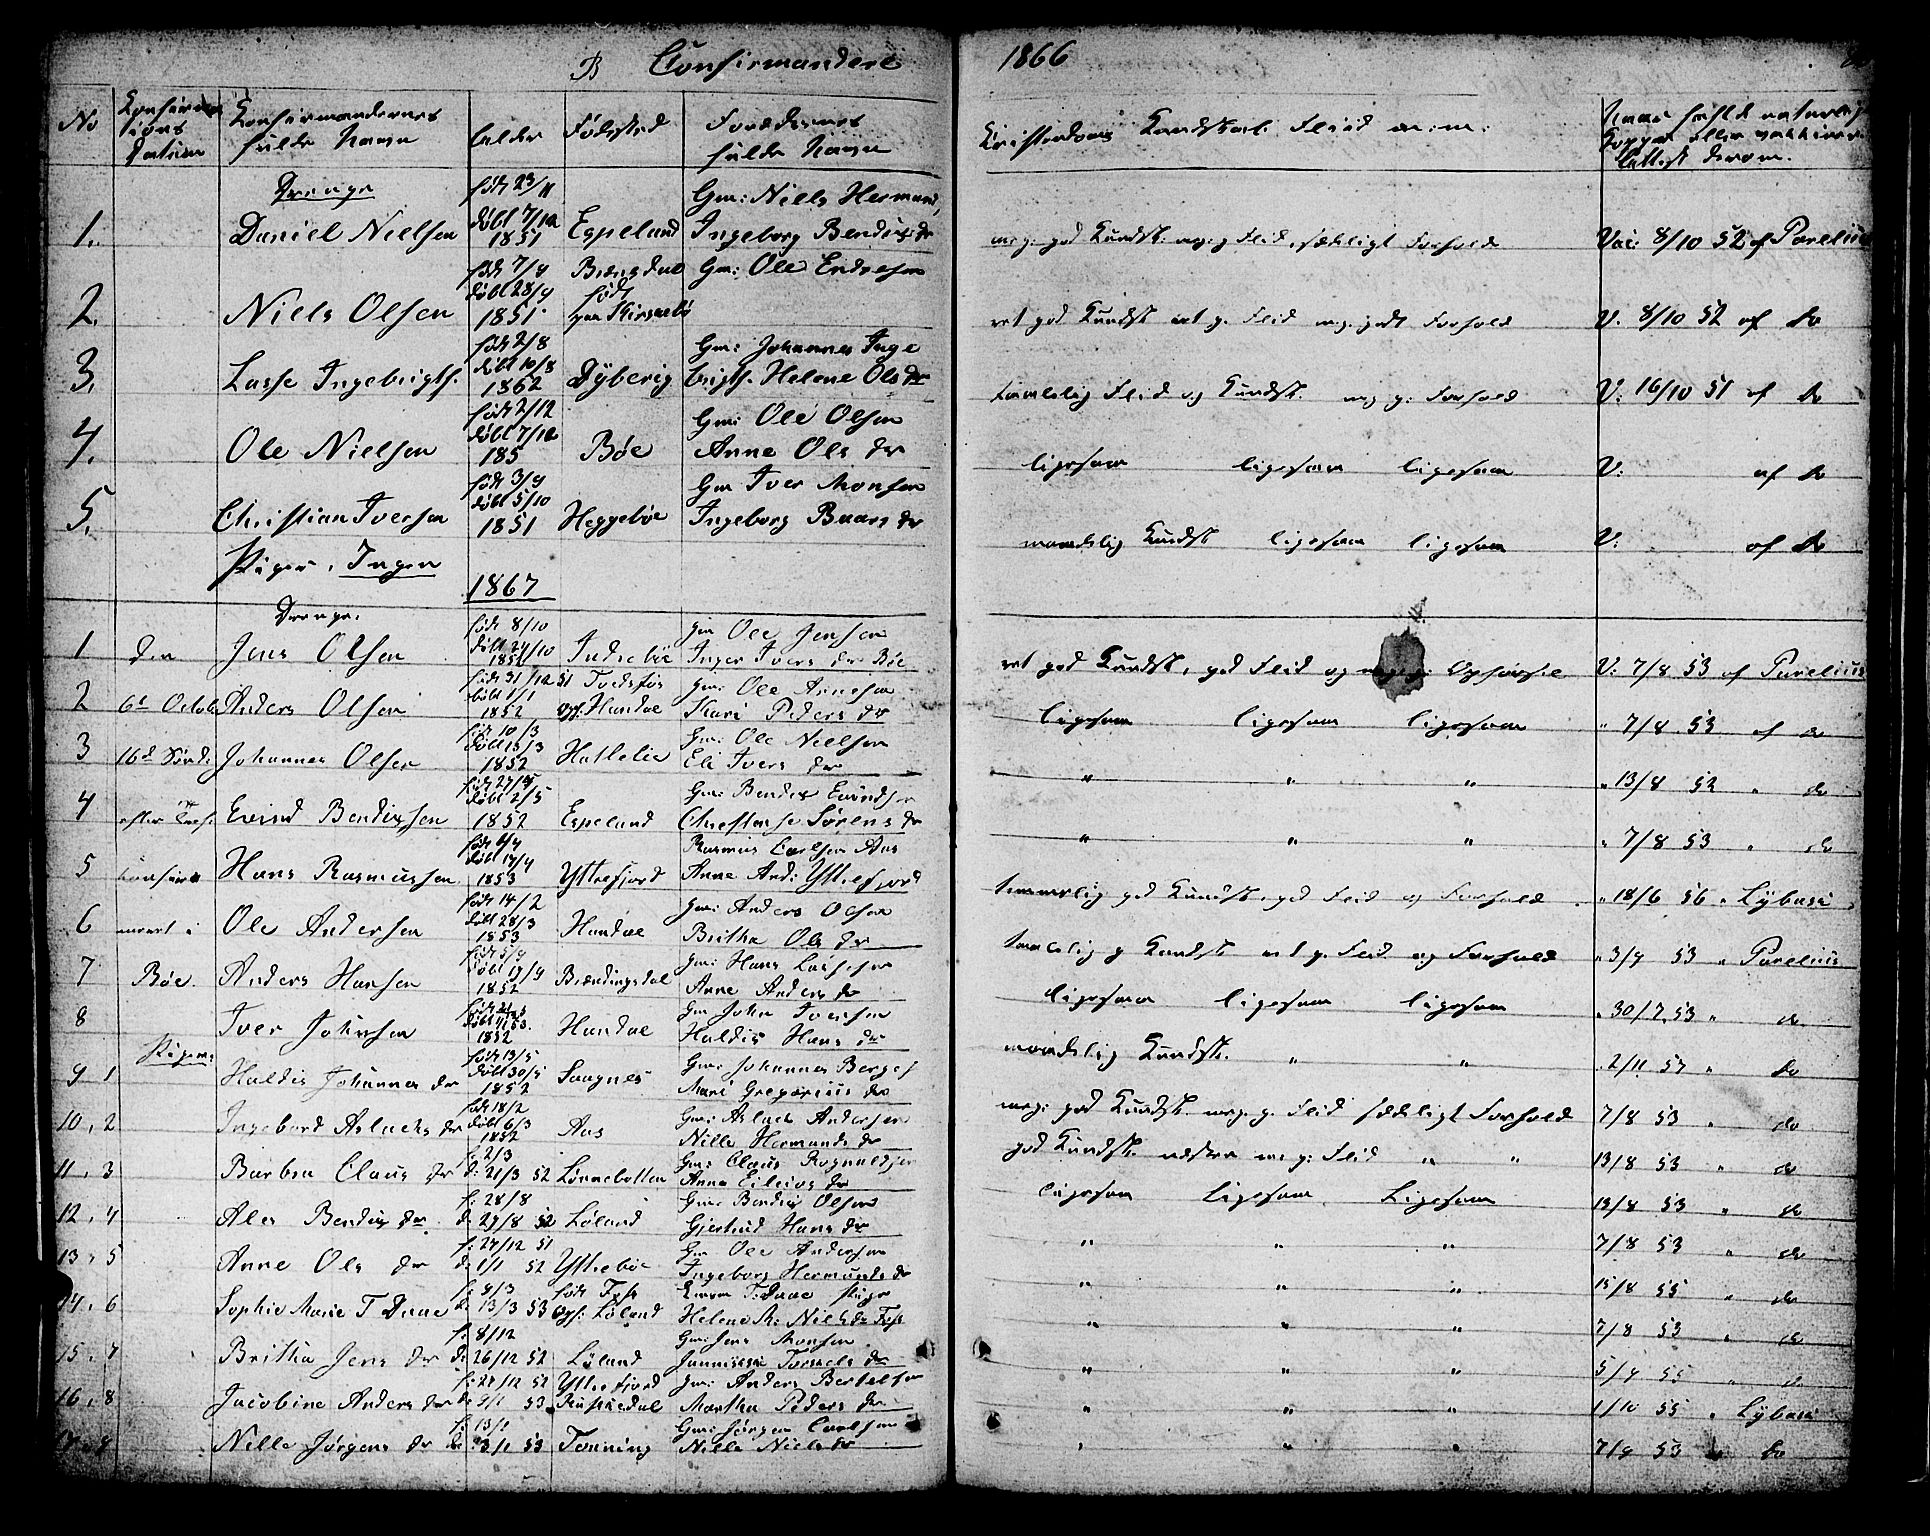 B Confirmandere 1866
No
Konfirma
tions
Datum
Konfirmandernes
fulde Navn
Alder
Fødested
Forældrenes
fulde Navn
Kristendoms Kundskab Flid m: m:
Naar havt naturlige
Kopper eller vakkinere
Attest derom.
Drenge
1. Daniel Nielsen født 23/11 døbt 7/12 1851 Espeland Gm: Niels Hermund, Ingeborg Bendixdr meg: god Kundsk: meg g. Flid, sædeligt Forhold Vac: 8/10 52 af Parelius
2. Niels Olsen født 7/4 døbt 28/4 1851 Brængsdal født Gm: Ole Endresen ret god Kundsk ret g. Flid m.g. godt Forhold V. 8/10 52 af do
3. Lasse Ingebrigts. født 2/8 døbt 10/8 1862 Dyberig Gm: Johannes Inge brigts. Helene Ols dr temelig Flid og Kundsk. meg g: Forhold V: 16/10 51 af do
4. Ole Nielsen født 2/12 døbt 7/12 185 Bøe Gm: Ole Olsen Anne Ols dr ligesaa ligesaa ligesaa V: af do
5. Christian Iversen født 3/9 døbt 5/10 1851 Heggebøe Gm Iver Monsen Ingeborg Baars dr maadelig Kundsk ligesaa ligesaa V: af do
Piger, Ingen
1867
Drenge.
1 den Jens Olsen født 8/10 døbt 24/10 1852 Indrebøe Gm Ole Jensen Inger Ivers dr Bøe ret god Kundsk, god Flid og Opførsel V: 7/8 53 af Parelius
2 6te Octob Anders Olsen født 31/12 51 døbt 1/1 1852 opf. Handøe Gm: Ole Arnesen Kari Peders dr ligesaa ligesaa ligesaa " 7/8 53 af do
3 16d Sønd: Johannes Olsen født 10/3 døbt 15/3 1852 Hatlelie Gm: Ole Nielsen Eli Ivers dr " " " " 13/8 52 " do
4 efter Tref. Evind Bendixsen døbt 2/5 1852 Espeland Gm: Bendix Evindsen Christense Sørens dr " " " " 7/8 53 " do
5 confir Hans Rasmussen født 6/4 døbt 17/4 1853 Yttrefjord Rasmus Carlsen Aas Anne And: Yttrefjord temmelig god Kundsk, god Flid og Forhold " 18/6 56 " Lybeck
6 meret i Ole Andersen født 14/2 døbt 28/3 1853 Handøe Gm: Anders Olsen Britha Ols dr temelig g Kundsk ret g. Flid og Forhold " 3/9 53 " Parelius
7 Bøe. Anders Hansen født 5/9 døbt 19/9 1852 Brændingsdal Gm: Hans Lassesen Anne Anders dr ligesaa ligesaa ligesaa " 30/7 53 " do
8 Iver Johnsen 1852 Handøe Gm John Iversen Haldis Hans dr maadelig Kundsk. " " 2/11 57 " do
Piger
9 1 Haldis Johannes dr født 13/5 døbt 30/5 1852 Saagnes Gm: Johannes Berges Mari Gregorius dr meg: god Kundsk. meg. g. Flid sædeligt Forhold 7/8 53 " do
10, 2 Ingebord Aslacks dr født 18/2 døbt 6/3 1852 Aas Gm: Aslack Andersen Nille Hermunds dr god Kundsk næsten m: g: Flid " " 13/8 53 " do
11, 3 Barbra Claus dr f: 2/3 d: 21/3 52 Lønnebotten Gm: Claus Rognaldsen Anna Eilivs dr ligesaa Ligesaa Ligesaa 13/8 53 " do
12, 4 Ales Bendix dr f: 28/8 d: 29/8 52 Løland Gm: Bendix Olsen Gjertrud Hans dr " " " 7/8 53 " do
13, 5 Anne Ols dr f: 27/12 51 d: 1/1 52 Yttrebøe Gm Ole Andersen Ingeborg Hermunds dr " " " 15/8 55 " do
14, 6 Sophie Marie T Daae f: 9/3 d: 13/3 53 født Fosse Opf: Løland Enson T. Daae Pige Helene M: Niels dr Fosse " " " 7/8 53 " do
15, 7 Britha Jens dr f: 8/12 d: 26/12 52 Løland Gm: Jens Monsen Torkels dr " " " 5/9 55 " do
16, 8 Jacobine Anders dr f: 27/12 52 d: 9/1 53 Yttrefjord Ruskedal Gm: Anders Bertelsen Martha Peders dr " " " 1/10 55 " Lybeck
17, 9 Nille Jørgens dr f: 13/1 53 Tonning Gm: Jørgen Carlsen Nille Niels dr " " " 7/9 53 " do